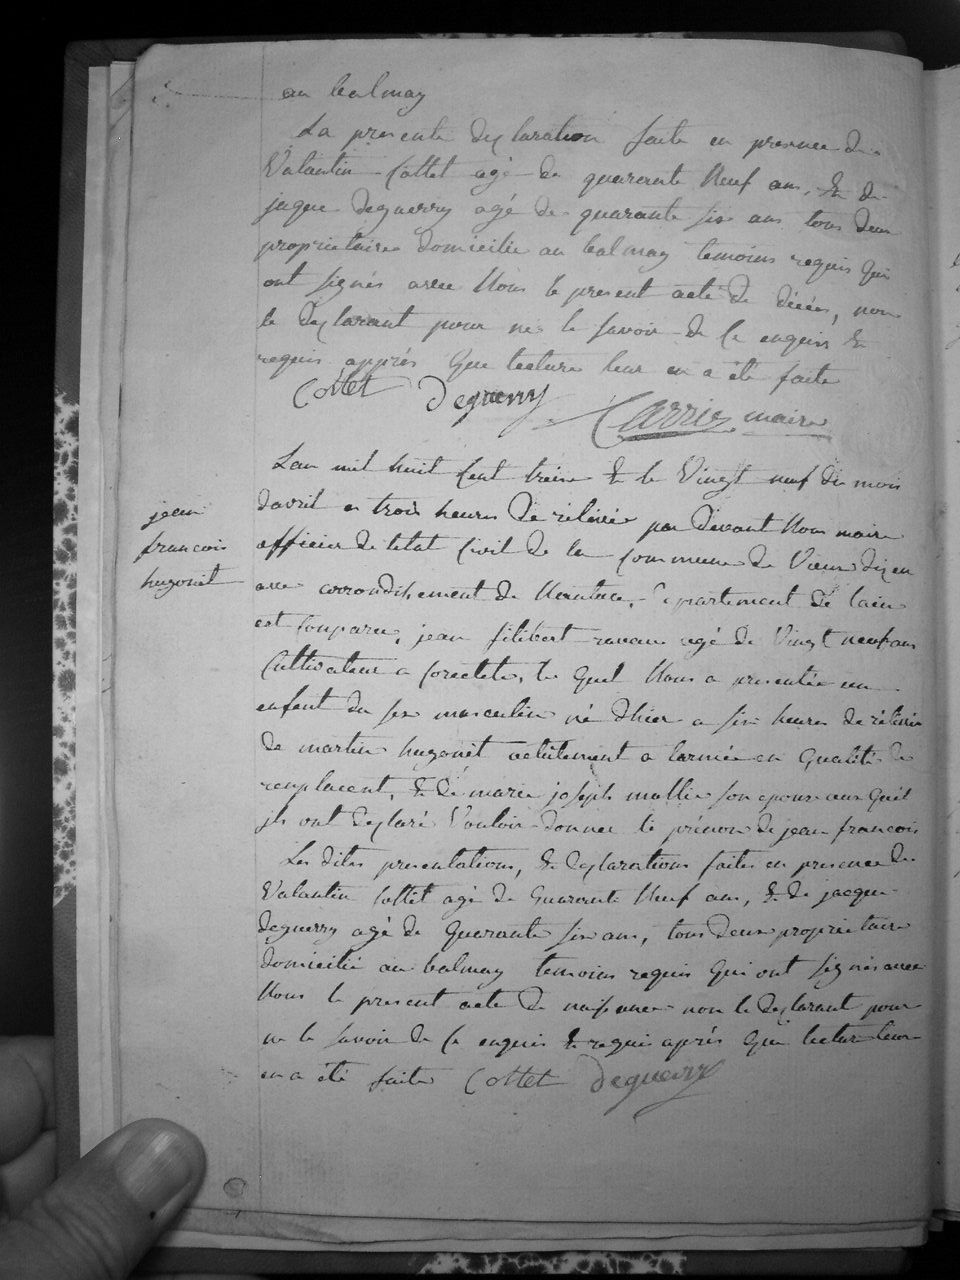 au balmay
La presente desclaration faite en presence de
Valantin Cottet agé de quarente Neuf ans, & de
jaque deguerry agé de quarante six ans tous deux
proprietaire domicilie au balmay temoins requis Qui
ont signés avec Nous le present acte de décés, non
le desclarant pour ne le savoir de Ce enquis &
requis apprés Que lecture leur en a été faite
Cottet Deguerry
Carrier maire
Lan mil huit Cent treize & le Vingt neuf du mois
davril a trois heures de relevée par devant Nous maire
officier de letat Civil de la commune de Vieu dizen
ave arrondissement de Nantua, departement de lain
est Comparu, jean filibert ravans agé de Vingt neuf ans
Cultivateur a , le Quel Nous a presentée un
enfant du sex masculin né dhier a six heures de relevée
de martin hugonet actuelement a larmée en Qualité de
remplacent, & de marie joseph mollie son epouse aux Quel
ils ont desclaré Vouloir donner le prénom de jean francois
Les dites presentations, & desclarations faites en presence de
Valantin Cottet agé de Quarente Neuf ans, & de jacque
deguerry agé de Quarante six ans, tous deux proprietaire
domicilie au balmay temoins requis Qui ont signés avec
Nous le present acte de naissance non le desclarant pour
ne le savoir de Ce enquis & requis aprés Que lecture leur
en a été faite Cottet deguerry
jean
francois
hugonet